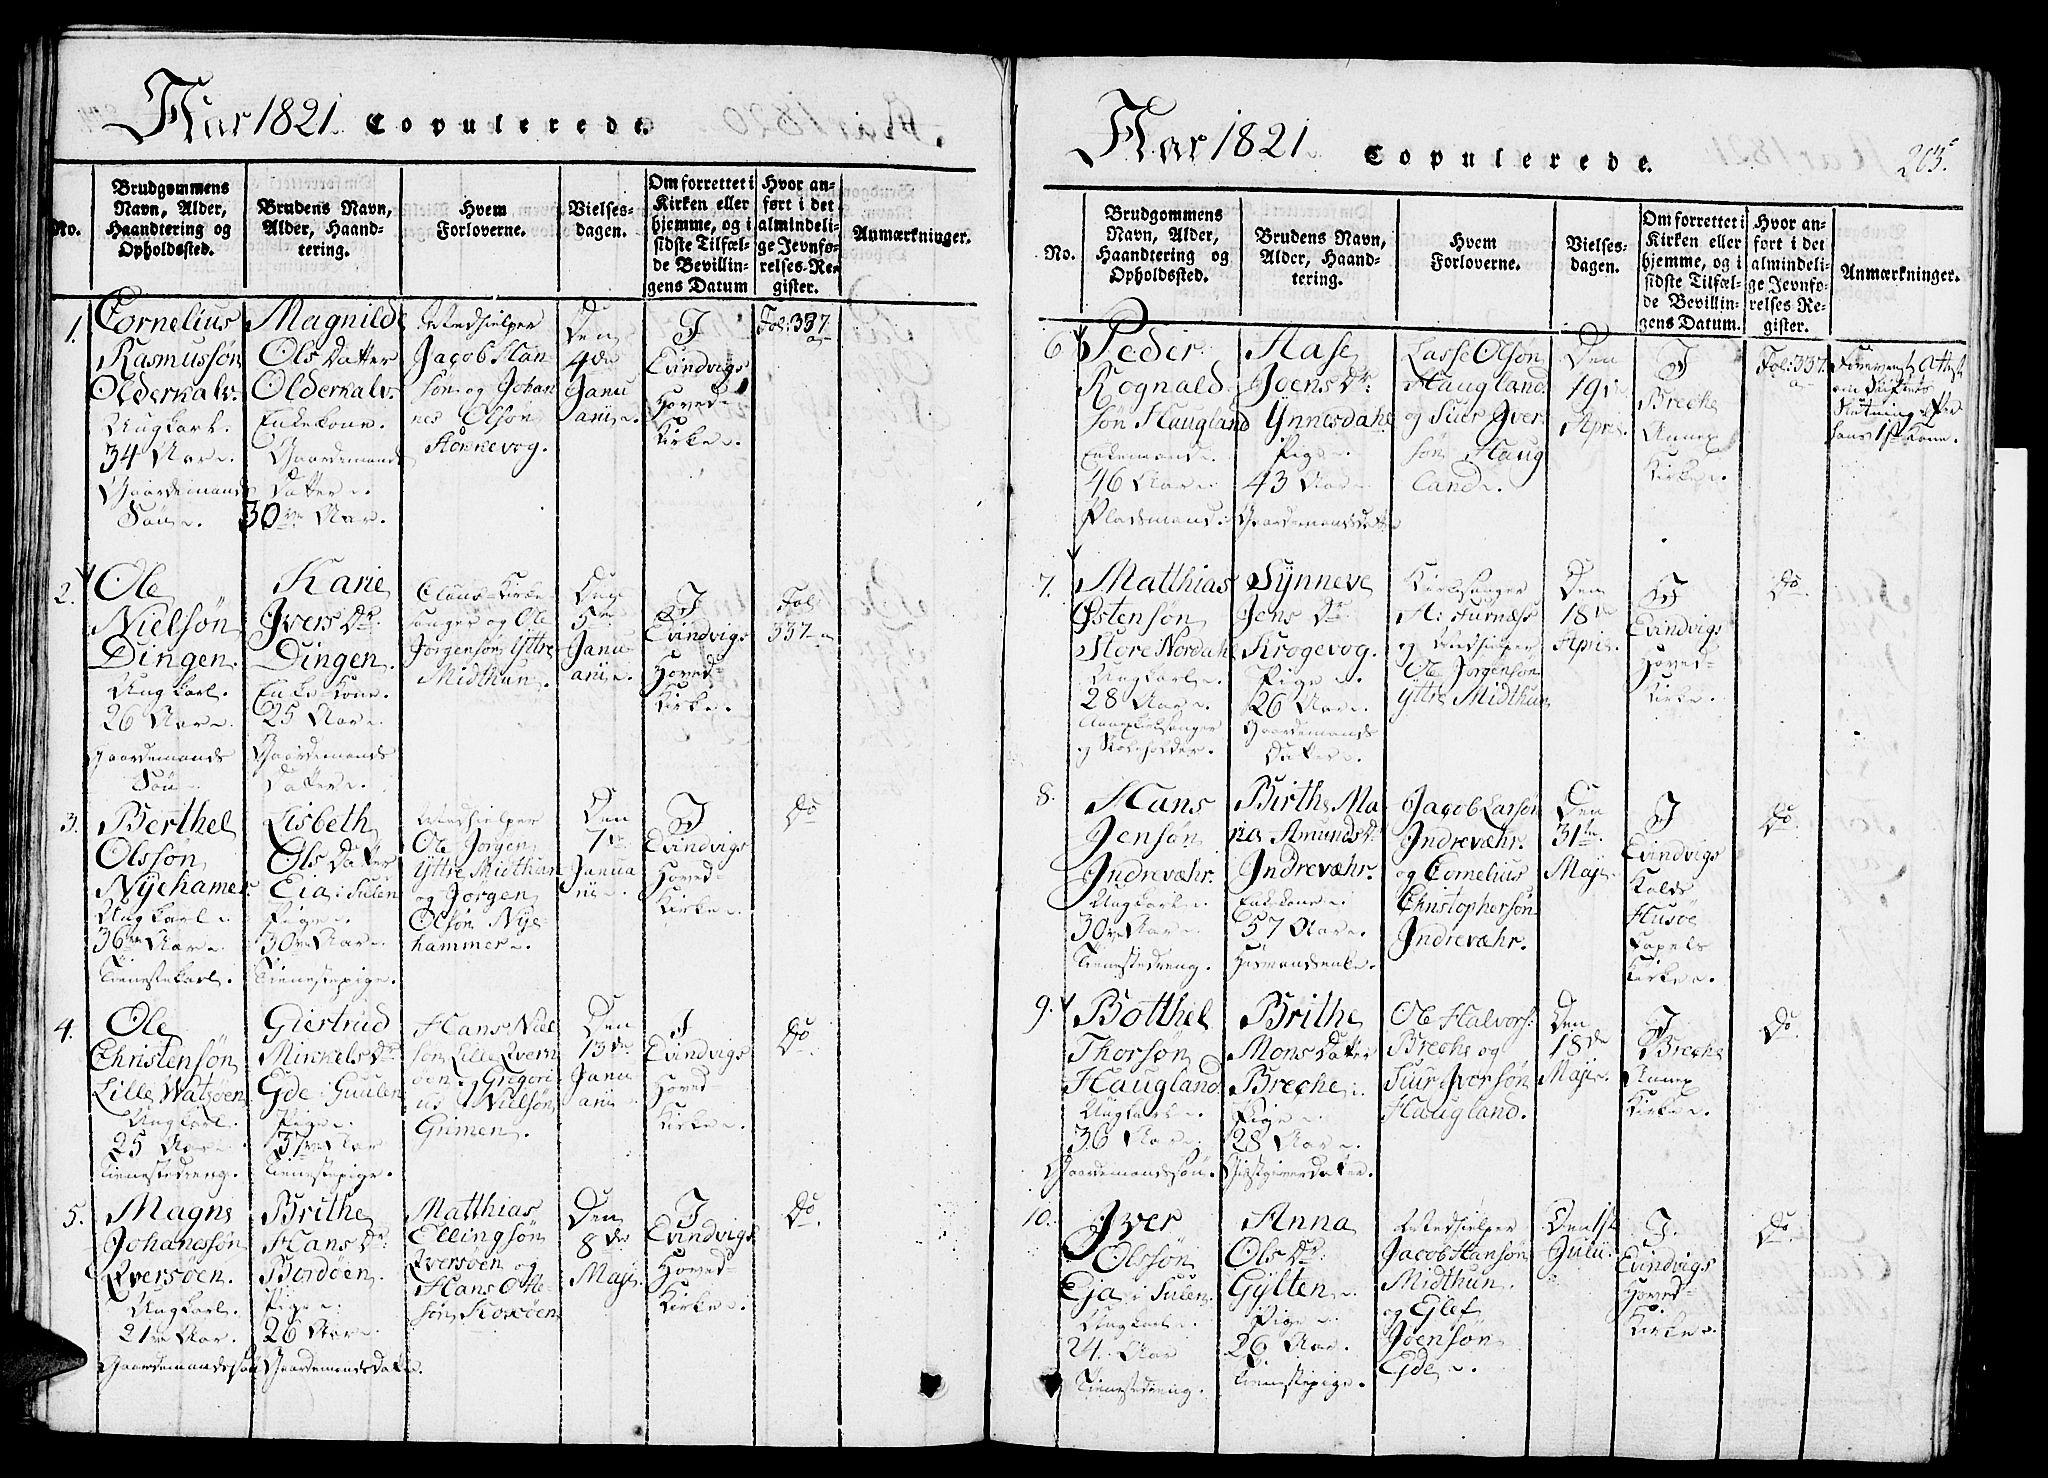 Aar 1821. Copulerede.
No.
Brudgommens
Navn, Alder,
Haandtering og
Opholdssted.
Brudens Navn,
Alder, Haand-
tering.
Hvem
Forloverne.
Vielses-
dagen.
Om forrettet i
Kirken eller
hjemme, og i
sidste Tilfæl-
de Bevillin-
gens Datum
Hvor an-
ført i det
almindeli-
ge Jevnfø-
relses-Re-
gister.
Anmærkninger.
1.
Cornelius
Rasmussøn
Olderkalv.
Ungkarl.
34 Aar.
Gaardemands
Søn.
Magnilde
Ols Datter
Olderkalv.
Enkekone.
Gaardemands
Datter.
30 Aar.
Medhielper
Jacob Han
søn og Johan
nes Olsøn
Den
4de
Janu
arii.
I
Evindvigs
Hoved
Kirke.
Fol: 337.
a
2.
Ole
Nielsøn
Dingen.
Ungkarl.
26 Aar.
Gaardemands
Søn
Karie
Ivers Dr.
Dingen.
Enke-Kone.
25 Aar.
Gaardemands
Datter.
Kirke
sanger og Ole
Jørgensøn Yttre
Midthun.
Den
5te
Janu
arii.
I
Evindvigs
Hoved-
Kirke.
Fol:
337. a
3.
Berthel
Olssøn
Nyehamer.
Ungkarl.
36 Aar.
Tienestekarl.
Lisbeth
Ols Datter
Eia i Sulen
Pige.
30 Aar.
Tienestepige.
Medhielper
Ole Jørgen
Yttre Midthun
og Jørgen
Olsøn Nye-
hammer.
Den
7de
Janua
rii.
I
Evindvigs
Hoved-
Kirke.
Do.
4.
Ole
Christensøn
Lille Watsøen
Ungkarl.
25 Aar.
Tienestedreng.
Giertrud
Minckels Dr.
Gde i Guulen
Pige.
37 Aar
Tienestepige.
Hans Niel
søn Lille Qvern
øen. Gregori
us Nielsøn
Grimen.
Den
13de
Janu
arii.
I
Evindvigs
Hoved
Kirke.
Do.
5.
Magne
Johanessøn
Qversøen.
Ungkarl.
21 Aar.
Gaardemandssøn
Brithe
Hans Dr.
Bordøen.
Pige.
26 Aar.
Gaardemandsdatter.
Matthias
Ellingsøn
Qversøen og
Hans Ole
søn
Den
8de
Maji.
I
Evindvigs
Hoved-
Kirke.
Do.
Aar 1821. Copulerede.
203.
No.
Brudgommens
Navn, Alder,
Haandtering og
Opholdssted.
Brudens Navn,
Alder, Haand-
tering.
Hvem
Forloverne.
Vielses-
dagen.
Om forrettet i
Kirken eller
hjemme, og i
sidste Tilfæl-
de Bevillin-
gens Datum.
Hvor an-
ført i det
almindeli-
ge Jevnfø-
relses Re-
gister.
Anmærkninger.
6
Peder
Rognald
søn Haugland
Enkemand.
46 Aar.
Pladsmand.
Aase
Joens Dr.
Ynnesdahl
Pige.
43 Aar.
Gaardemandsdatter
Lasse Olsøn
Haugland.
og Siur Iver
søn Haug
land.
Den
19de
April.
I
Breche
Annex
Kirke.
Fol: 337.
a
Foreviist Attest
om Skiftets
Slutning efter
hans 1ste Kone.
7.
Matthias
Østensøn
Store Nordahl
Ungkarl.
28 Aar.
og Skoleholder.
Synneve
Jens Dr.
Krogevog.
Pige.
26 Aar.
Gaardemands
Datter.
Kirkesanger
A: Furnæss
og Medhielper
Ole Jørgensøn
Yttre Midthun
Den
18de
April.
I
Evindvigs
Hoved-
Kirke.
Do.
8.
Hans
Jensøn
Indrevæhr.
Ungkarl.
30 Aar.
Tienestedreng.
Birthe Ma
ria Amunds Dr.
Indrevæhr.
Enkekone.
57 Aar.
Huusmandsenke.
Jacob Larsøn
Indrevæhr.
og Cornelius
Christophersøn
Indrevæhr.
Den
31te
Maji.
I
Evindvigs
Kalds
Husøe
Capels
Kirke.
Do.
9.
Botthel
Thorsøn
Haugland
Ungkarl.
36 Aar.
Gaardemandssøn.
Brithe
Mons Datter
Breche.
Pige.
28 Aar.
Giestgiverdatter.
Ole Halvors:
Breche og
Siur Iversøn
Haugland.
Den
18de
Maji.
I
Breche
Annex
Kirke.
Do.
10.
Iver
Olssøn
Eja i Sulen
Ungkarl.
24. Aar
Tienestedreng.
Anna
Ols Dr.
Gylten.
Pige.
26 Aar.
Tienestepige.
Medhielper
Jacob Hansøn
Midthun.
og Ejlef
Joensøn
Gde.
Den 1ste
Julii.
I.
Evindvigs
Hoved-
Kirke.
Do.